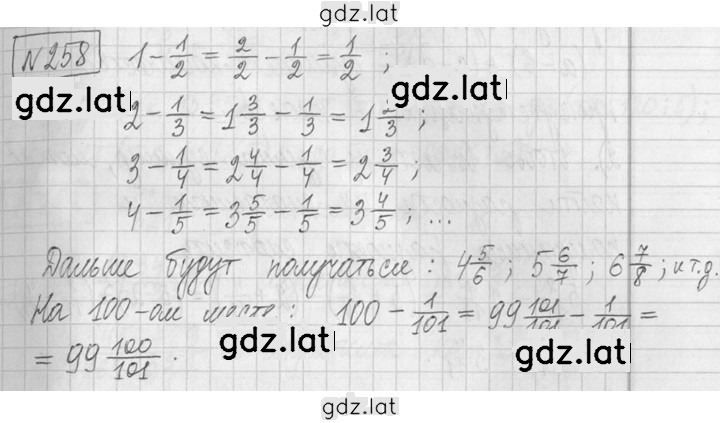 gdz.lat
№258 1 - 1/2 = 2/2 - 1/2 = 1/2 ;
gdz.lat
2 - 1/3 = 1 3/3 - 1/3 = 1 2/3 ;
3 - 1/4 = 2 4/4 - 1/4 = 2 3/4 ;
4 - 1/5 = 3 5/5 - 1/5 = 3 4/5 ; ...
Дальше будут получаться : 4 5/6 ; 5 6/7 ; 6 7/8 ; и т.д.
На 100-ом месте : 100 - 1/101 = 99 101/101 - 1/101 =
gdz.lat gdz.lat
= 99 100/101 .
gdz.lat